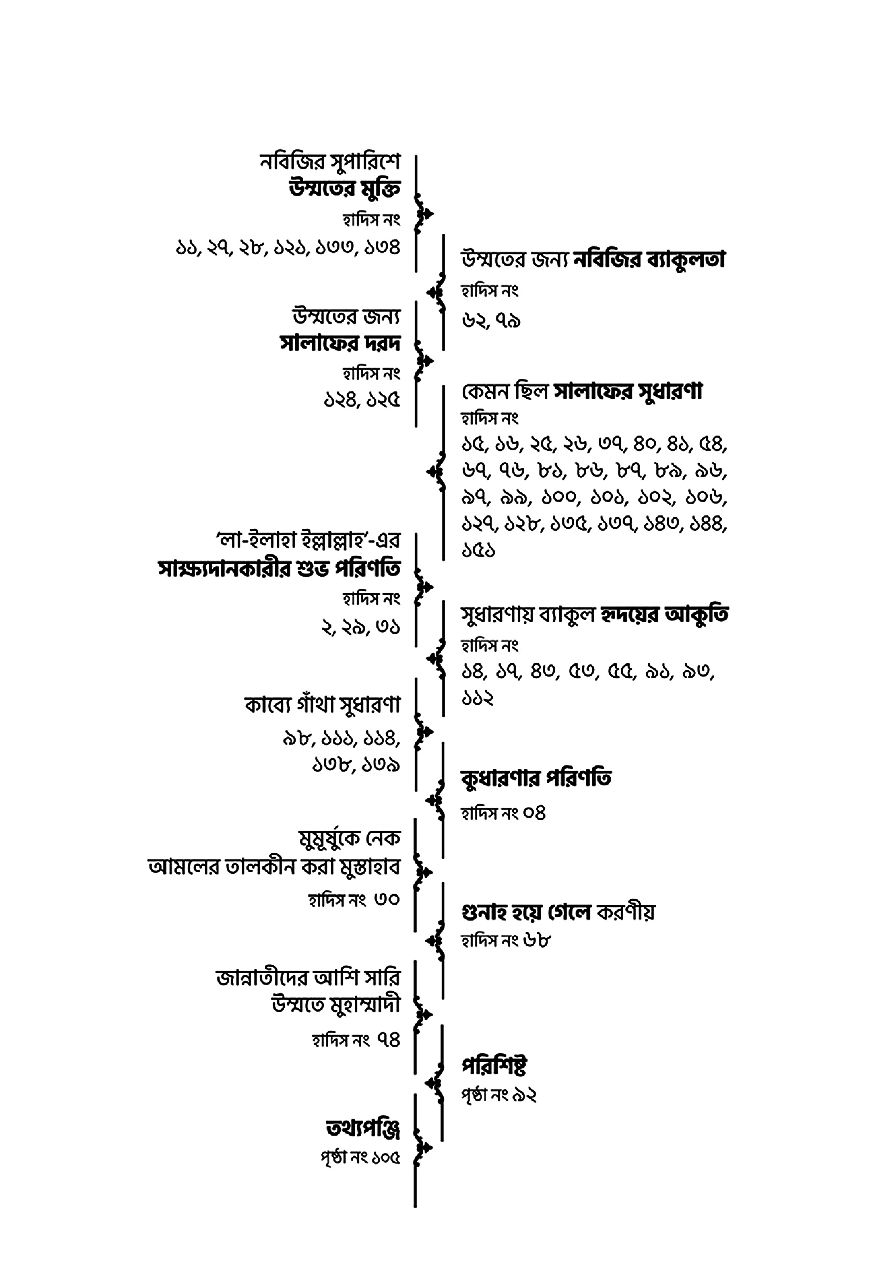 নবিজির সুপারিশে
উম্মতের মুক্তি
হাদিস নং
১১, ২৭, ২৮, ১২১, ১৩৩, ১৩৪
উম্মতের জন্য নবিজির ব্যাকুলতা
হাদিস নং
৬২, ৭৯
উম্মতের জন্য
সালাফের দরদ
হাদিস নং
১২৪, ১২৫
কেমন ছিল সালাফের সুধারণা
হাদিস নং
১৫, ১৬, ২৫, ২৬, ৩৭, ৪০, ৪১, ৫৪,
৬৭, ৭৬, ৮১, ৮৬, ৮৭, ৮৯, ৯৬,
৯৭, ৯৯, ১০০, ১০১, ১০২, ১০৬,
১২৭, ১২৮, ১৩৫, ১৩৭, ১৪৩, ১৪৪,
১৫১
‘লা-ইলাহা ইল্লাল্লাহ’-এর
সাক্ষ্যদানকারীর শুভ পরিণতি
হাদিস নং
২, ২৯, ৩১
সুধারণায় ব্যাকুল হৃদয়ের আকুতি
হাদিস নং
১৪, ১৭, ৪৩, ৫৩, ৫৫, ৯১, ৯৩,
১১২
কাব্যে গাঁথা সুধারণা
৯৮, ১১১, ১১৪,
১৩৮, ১৩৯
কুধারণার পরিণতি
হাদিস নং ০৪
মুমূর্ষুকে নেক
আমলের তালকীন করা মুস্তাহাব
হাদিস নং ৩০
গুনাহ হয়ে গেলে করণীয়
হাদিস নং ৬৮
জান্নাতীদের আশি সারি
উম্মতে মুহাম্মাদী
হাদিস নং ৭৪
পরিশিষ্ট
পৃষ্ঠা নং ৯২
তথ্যপঞ্জি
পৃষ্ঠা নং ১০৫